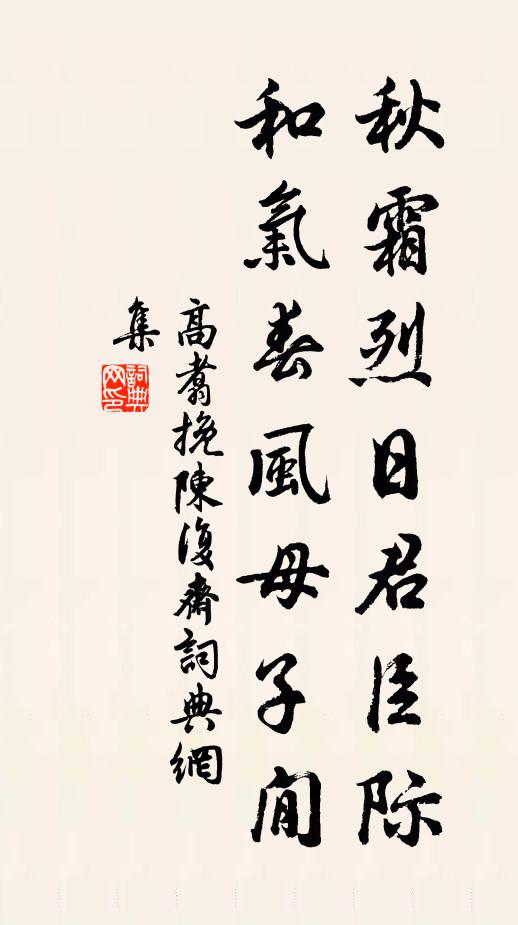 秋霜烈日君臣际
和氣春風母子间
高翥挽陳復齋詞典網
集
詞典
网印